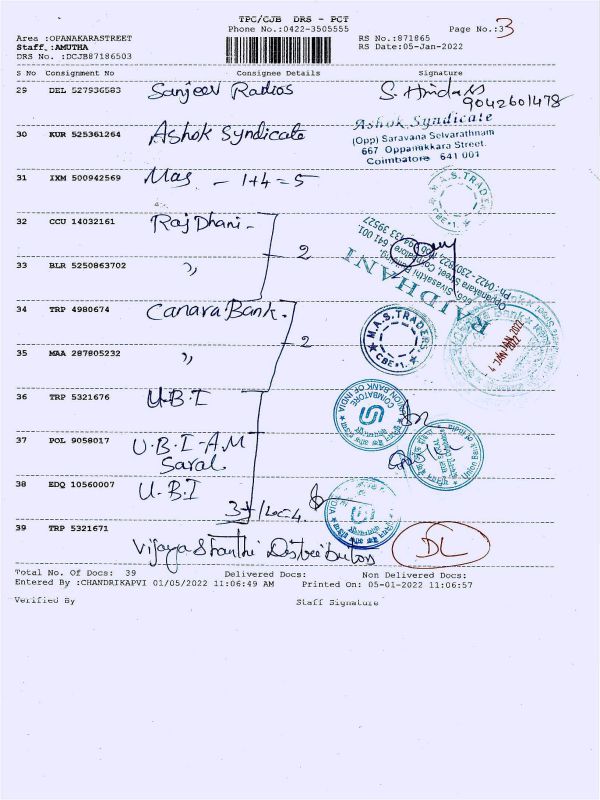 TPC/CJB DRS - PCT
Phone No.:0422-3505555
Page No.:3
Area :OPANAKARASTREET
RS No.:871865
Staff :AMUTHA
RS Date:05-Jan-2022
DRS No. :DCJB87186503
S No Consignment No Consignee Details Signature
29 DEL 527936583 Sanjeev Radios
9042601478
30 KUR 525361264 Ashok Syndicate
Ashok Syndicate
(Opp) Saravana Selvarathnam
667 Oppanakkara Street.
Coimbatore 641 001
31 IXM 500942569 Mas - 1+4=5
M.A.S. TRADERS
CBE-1.
32 CCU 14032161 Raj Dhani -
2
33 BLR 5250863702 ,,
RAJDHANI
34 TRP 4980674 Canara Bank.
2
M.A.S. TRADERS
CBE-1.
4 JAN 2022
35 MAA 287805232 ,,
36 TRP 5321676 U.B.I
COIMBATORE
UNION BANK OF INDIA
37 POL 9058017 U.B.I-A.M
Saral
Union Bank of India
38 EDQ 10560007 U.B.I
39 TRP 5321671
Vijaya Shanthi Distributors
DL
Total No. Of Docs: 39 Delivered Docs: Non Delivered Docs:
Entered By :CHANDRIKAPVI 01/05/2022 11:06:49 AM Printed On: 05-01-2022 11:06:57
Verified By Staff Signature